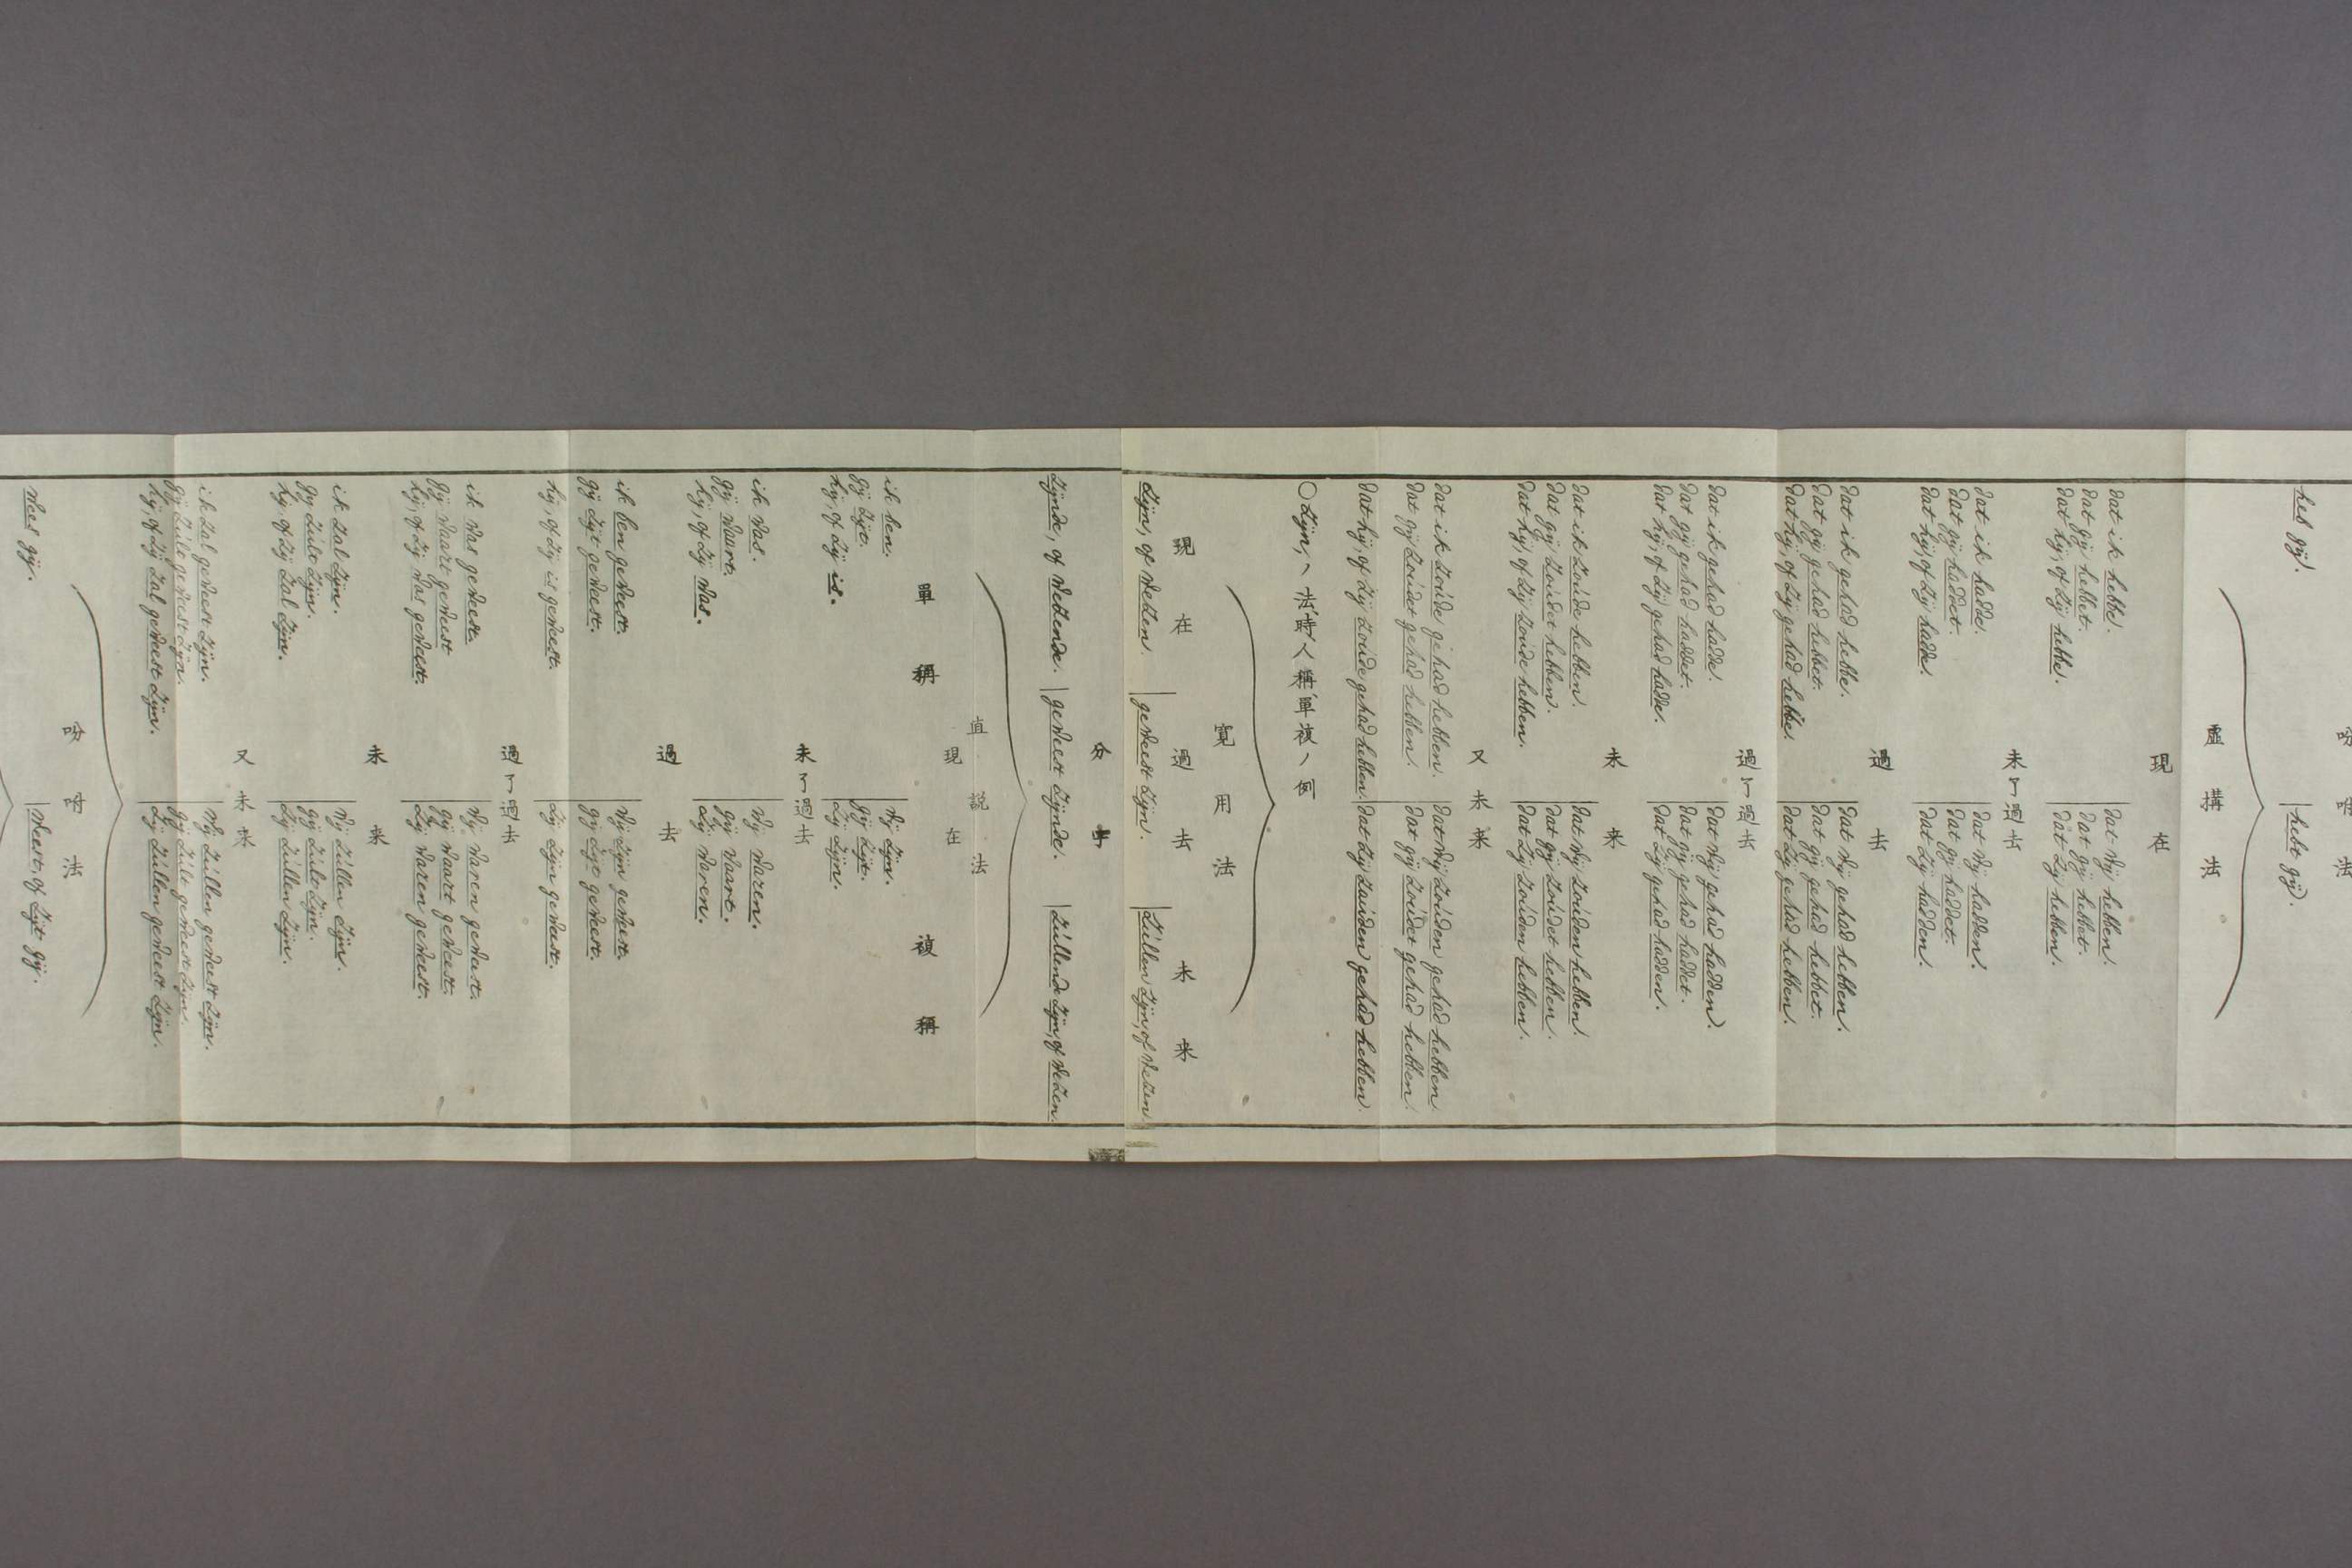 吩咐法
heb gij. | hebt gij.
虛構法
現在
dat ik hebbe. | dat wij hebben.
dat gij hebbet. | dat gij hebbet.
dat hij, of zij hebbe. | dat zij hebben.
未了過去
dat ik hadde. | dat wij hadden.
dat gij haddet. | dat gij haddet.
dat hij, of zij hadde. | dat zij hadden.
過去
dat ik gehad hebbe. | dat wij gehad hebben.
dat gij gehad hebbet. | dat gij gehad hebbet.
dat hij, of zij gehad hebbe. | dat zij gehad hebben.
過了過去
dat ik gehad hadde. | dat wij gehad hadden.
dat gij gehad haddet. | dat gij gehad haddet.
dat hij, of zij gehad hadde. | dat zij gehad hadden.
未來
dat ik zoúde hebben. | dat wij zoúden hebben.
dat gij zoúdet hebben. | dat gij zoúdet hebben.
dat hij, of zij zoúde hebben. | dat zij zoúden hebben.
又未來
dat ik zoúde gehad hebben. | dat wij zoúden gehad hebben
dat gij zoúdet gehad hebben. | dat gij zoúdet gehad hebben.
dat hij, of zij zoúde gehad hebben. | dat zij zoúden gehad hebben.
○zijn, 法時人稱單複ノ例
寛用法
現在 過去 未来
zijn, of wezen. | geweest zijn. | zúllen zijn, of wezen
分
zijnde, of wezende. | geweest zijnde. | zúllende zijn, of wezen.
直說法
現在
單稱 複稱
ik ben. | wij zijn.
gij zijt. | gij zijt.
hij, of zij is. | zij zijn.
未了過去
ik was. | wij waren.
gij waart. | gij waart.
hij, of zij was. | zij waren.
過去
ik ben geweest. | wij zijn geweest.
gij zijt geweest. | gij zijt geweest.
hij, of zij is geweest. | zij zijn geweest.
過了過去
ik was geweest. | wij waren geweest.
gij waart geweest | gij waart geweest.
hij, of zij was geweest. | zij waren geweest.
未來
ik zal zijn. | wij zúllen zijn.
gij zúlt zijn. | gij zúlt zijn.
hij, of zij zal zijn. | zij zúllen zijn.
又未來
ik zal geweest zijn. | wij zúllen geweest zijn.
gij zúlt geweest zijn. | gij zúlt geweest zijn.
hij, of zij zal geweest zijn. | zij zúllen geweest zijn.
吩咐法
wees gij. | weest, of zijt gij.